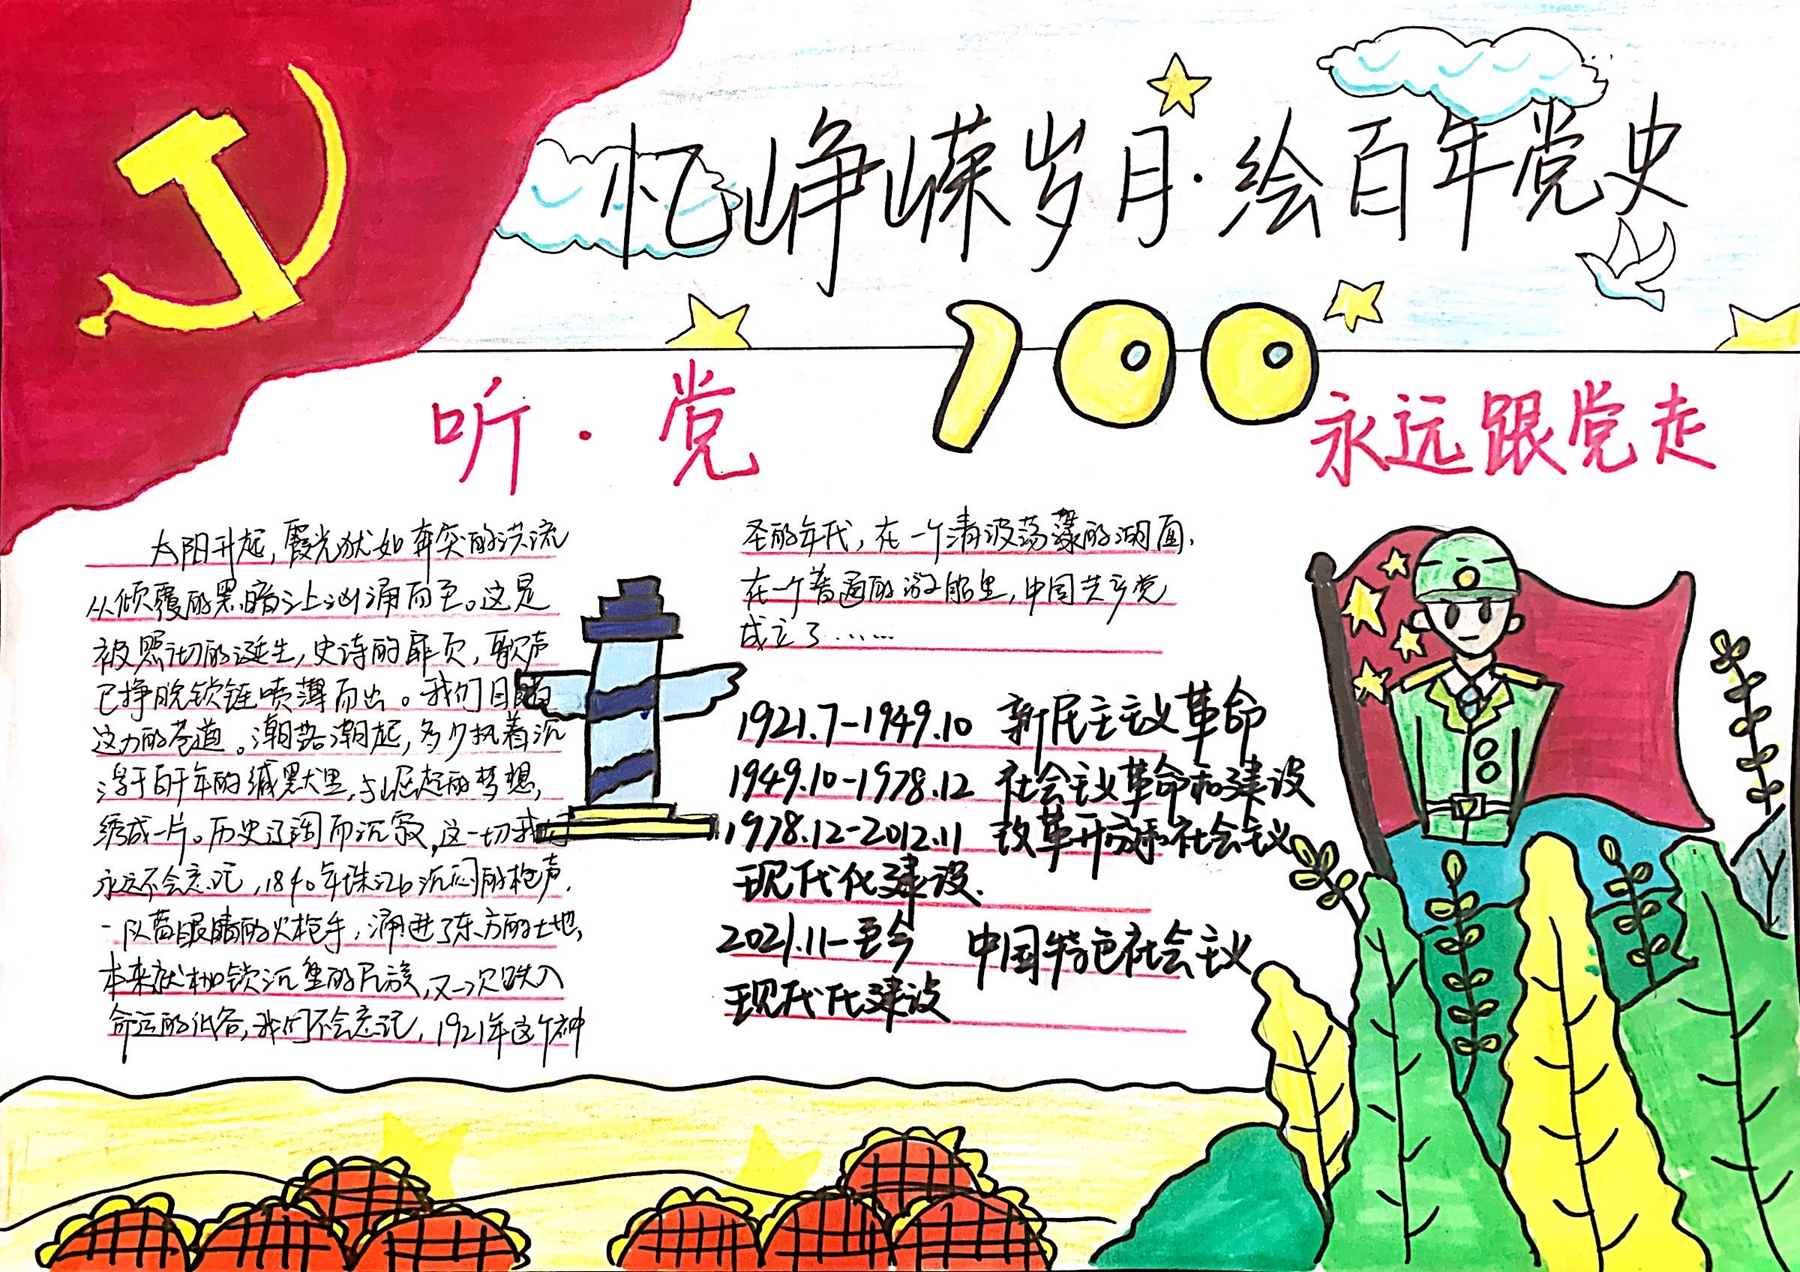 忆峥嵘岁月·绘百年党史
100
听·党
永远跟党走
太阳升起,霞光犹如奔突的洪流
从倾覆的黑暗之上汹涌而至。这是
被照彻的诞生,史诗的扉页,歌声
已挣脱锁链喷薄而出。我们目睹
这力的苍遒。潮落潮起,多少执着沉
浮于百千年的缄默里,与崛起的梦想,
绣成一片。历史辽阔而沉寂,这一切我们
永远不会忘记,1840年珠江口沉闷的枪声.
一队蓝眼睛的火枪手,涌进了东方的土地,
本来就枷锁沉重的民族,又一次跌入
命运的低谷,我们不会忘记,1921年这个神
圣的年代,在一个清波荡漾的湖面,
在一个普通的游船里,中国共产党
成立了……
1921.7-1949.10 新民主主义革命
1949.10-1978.12 社会主义革命和建设
1978.12-2012.11 改革开放和社会主义
现代化建设.
2021.11-至今 中国特色社会主义
现代化建设